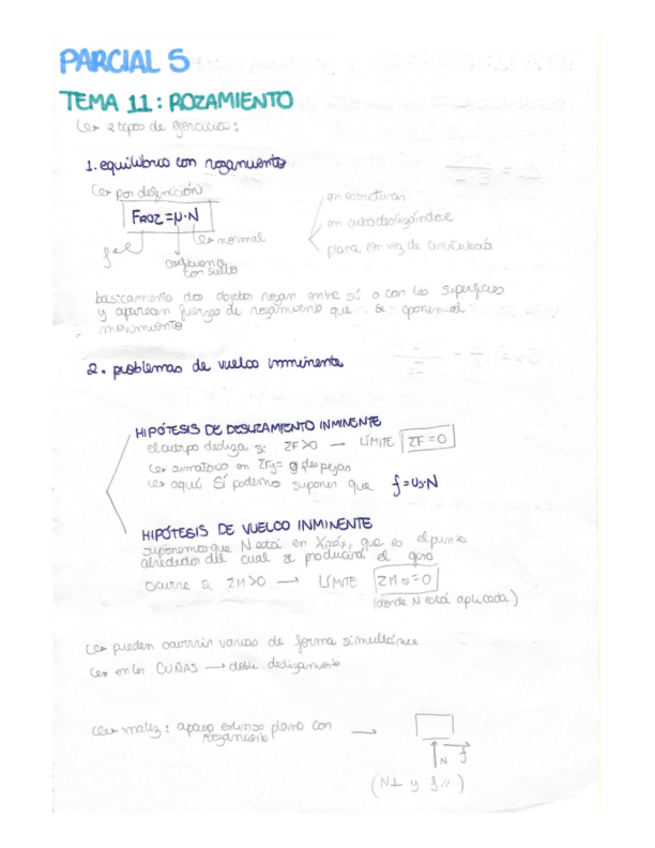 PARCIAL 5
TEMA 11: ROZAMIENTO
↳ 2 tipos de ejercicios:
1. equilibrio con rozamiento
↳ por definición
FROZ = μ·N
↳ normal
coeficiente
con suelo
en estructuras
en cubo deslizándose
placa en vez de articulada
básicamente dos objetos rozan entre sí o con las superficies
y aparecen fuerzas de rozamiento que se oponen al
movimiento
2. problemas de vuelco inminente
HIPÓTESIS DE DESLIZAMIENTO INMINENTE
el cuerpo desliza si ΣF>0 → LÍMITE ΣF=0
↳ sumatorio en ΣFy= 0 despejar
↳ aquí SÍ podemos suponer que f=us·N
HIPÓTESIS DE VUELCO INMINENTE
suponemos que N está en Xmáx, que es el punto
alrededor del cual se producirá el giro
ocurre si ΣM>0 → LÍMITE ΣM =0
(donde N está aplicada)
↳ pueden ocurrir varias de forma simultánea
↳ en las CUÑAS → doble deslizamiento
↳ matiz: apoyo extenso plano con
rozamiento →
N f
(N⊥ y f //)